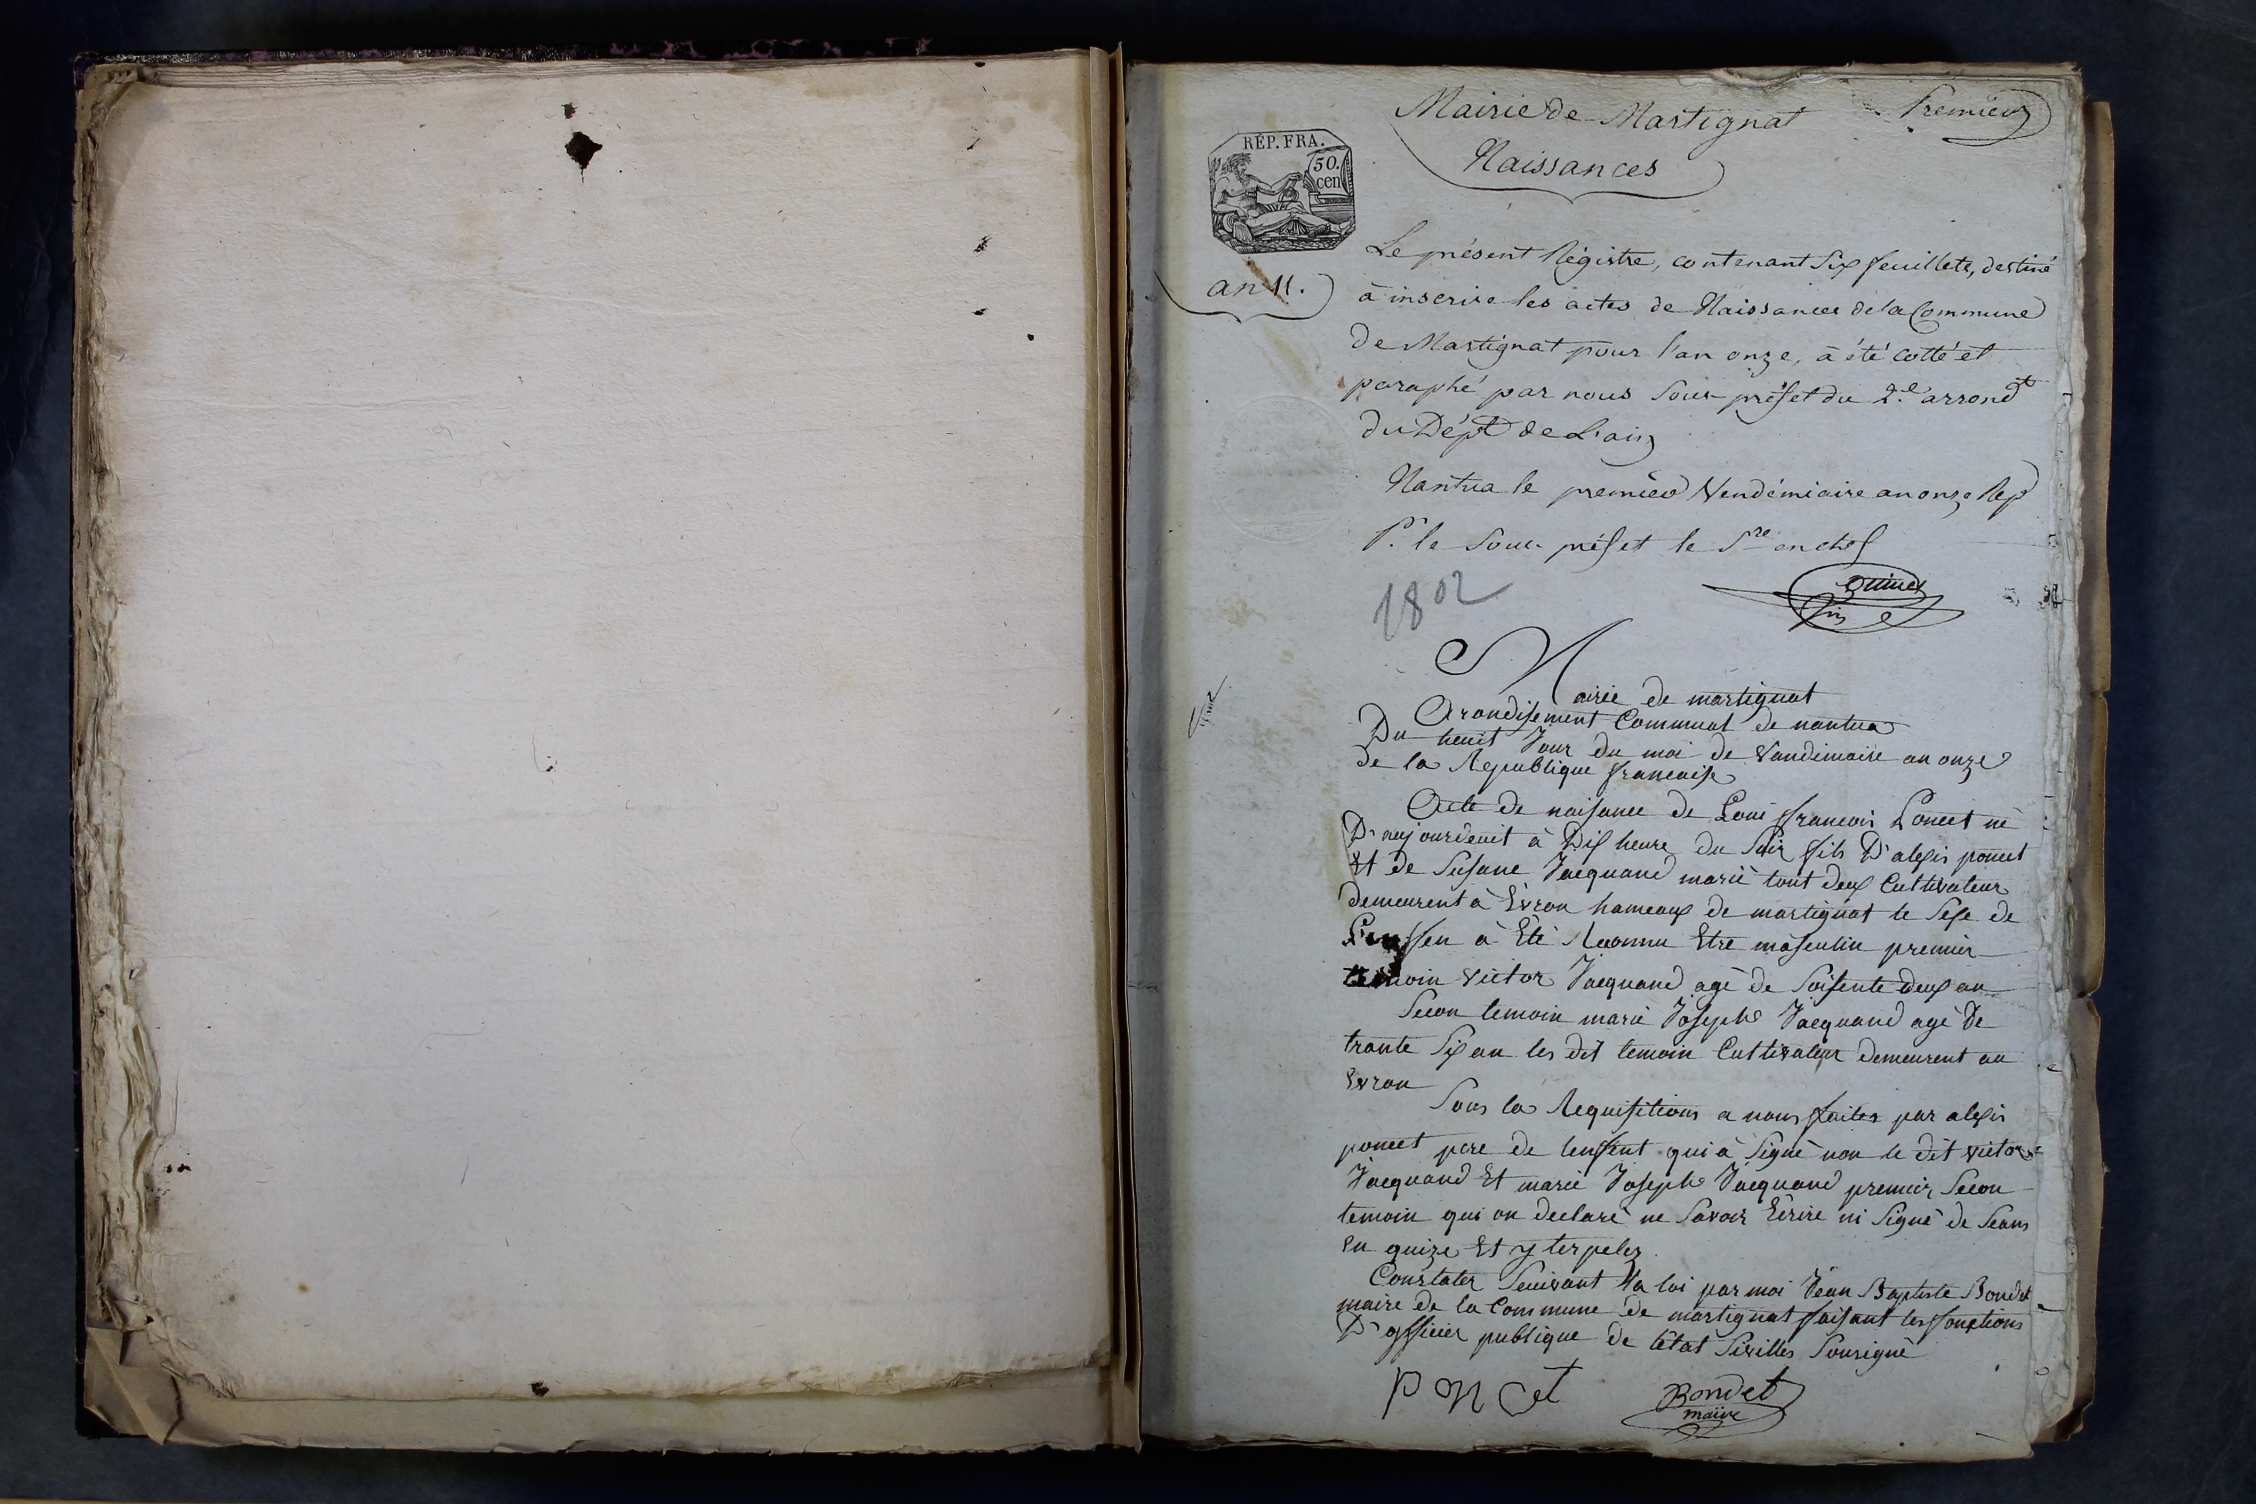 Mairie de Martignat
Premier
Naissances
RÉP. FRA.
50.
cen
an 11.
Le présent Régistre, contenant Six feuillets, destiné
à inscrire les actes de Naissances de la Commune
de Martignat pour l'an onze, à été cotté et
paraphé par nous Sous-préfet du 2.e arrond.t
du Dép.t de L'ain
Nantua le premier Vendémiaire an onze Rep
P.r le Sous-préfet le S.re en chef
1802
Mairie de martignat
Arondisement Communal de nantua
Du heuit Jour du moi de Vandimaire an onze
de la Republique francaise
Acte de naisance de Loui francois Poncet né
D'aujourdeuit à Dix heure du Soir fils D'alexis poncet
Et de Susane Jacquand marié tout deux Cultivateur
demeurent à Evron hameaux de martignat le Sexe de
Lenffen à Eté Reconnu Etre masculin premier
temoin Victor Jacquand agé de Soisente deux an
Secon temoin marie Joseph Jacquand agé de
trante Six an les dit temoin Cultivateur demeurent au
Evron
Sous la Requisitions a nous faites par alexis
poncet pere de lenfent qui à Signé non le dit victor
Jacquand Et marie Joseph Jacquand premier Secon
temoin qui on declaré ne Savoir Ecrire ni Signé de Seans
En quize Et y terpelez.
Constater Seuivant la loi par moi Jean Baptiste Bondet
maire de la Commune de martignat faisant les fonctions
D'officier publique de létat Sivilles Sousigné
Poncet
Bondet
maire